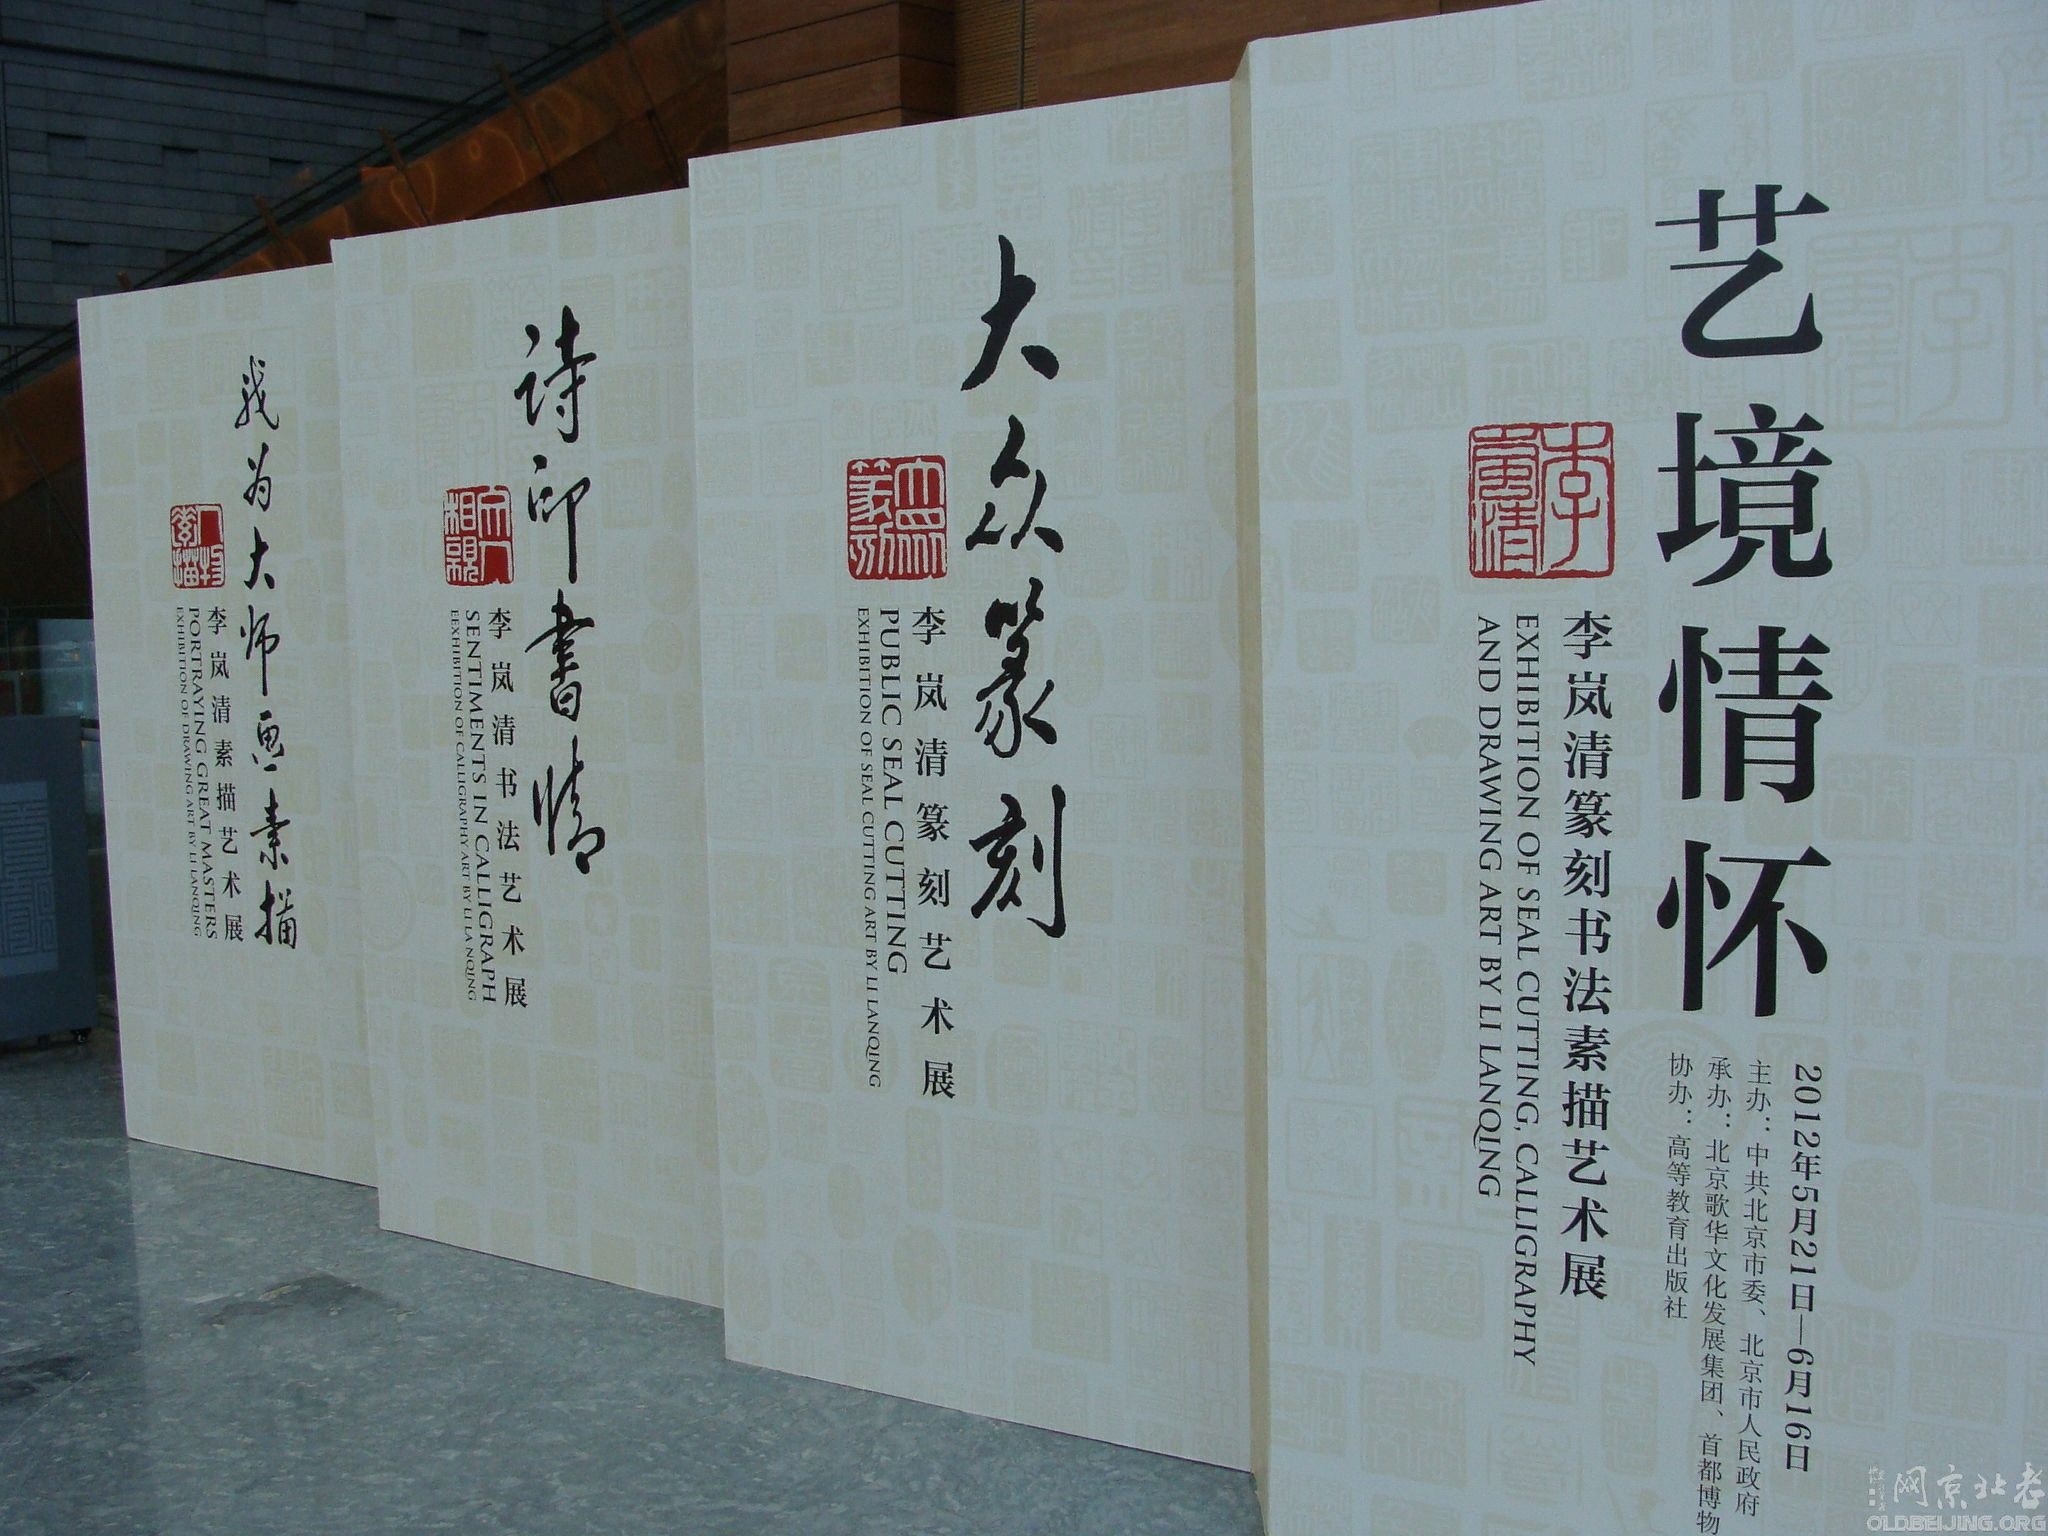 艺境情怀
李岚清篆刻书法素描艺术展
EXHIBITION OF SEAL CUTTING, CALLIGRAPHY
AND DRAWING ART BY LI LANQING
2012年5月21日—6月16日
主办：中共北京市委、北京市人民政府
承办：北京歌华文化发展集团、首都博物
协办：高等教育出版社
大众篆刻
李岚清篆刻艺术展
PUBLIC SEAL CUTTING
EXHIBITION OF SEAL CUTTING ART BY LI LANQING
诗印書情
李岚清书法艺术展
SENTIMENTS IN CALLIGRAPH
EEXHIBITION OF CALLIGRAPHY ART BY LI LA NQING
我为大师画素描
李岚清素描艺术展
PORTRAYING GREAT MASTERS
EXHIBITION OF DRAWING ART BY LI LANQING
网京北老
OLDBEIJING.ORG